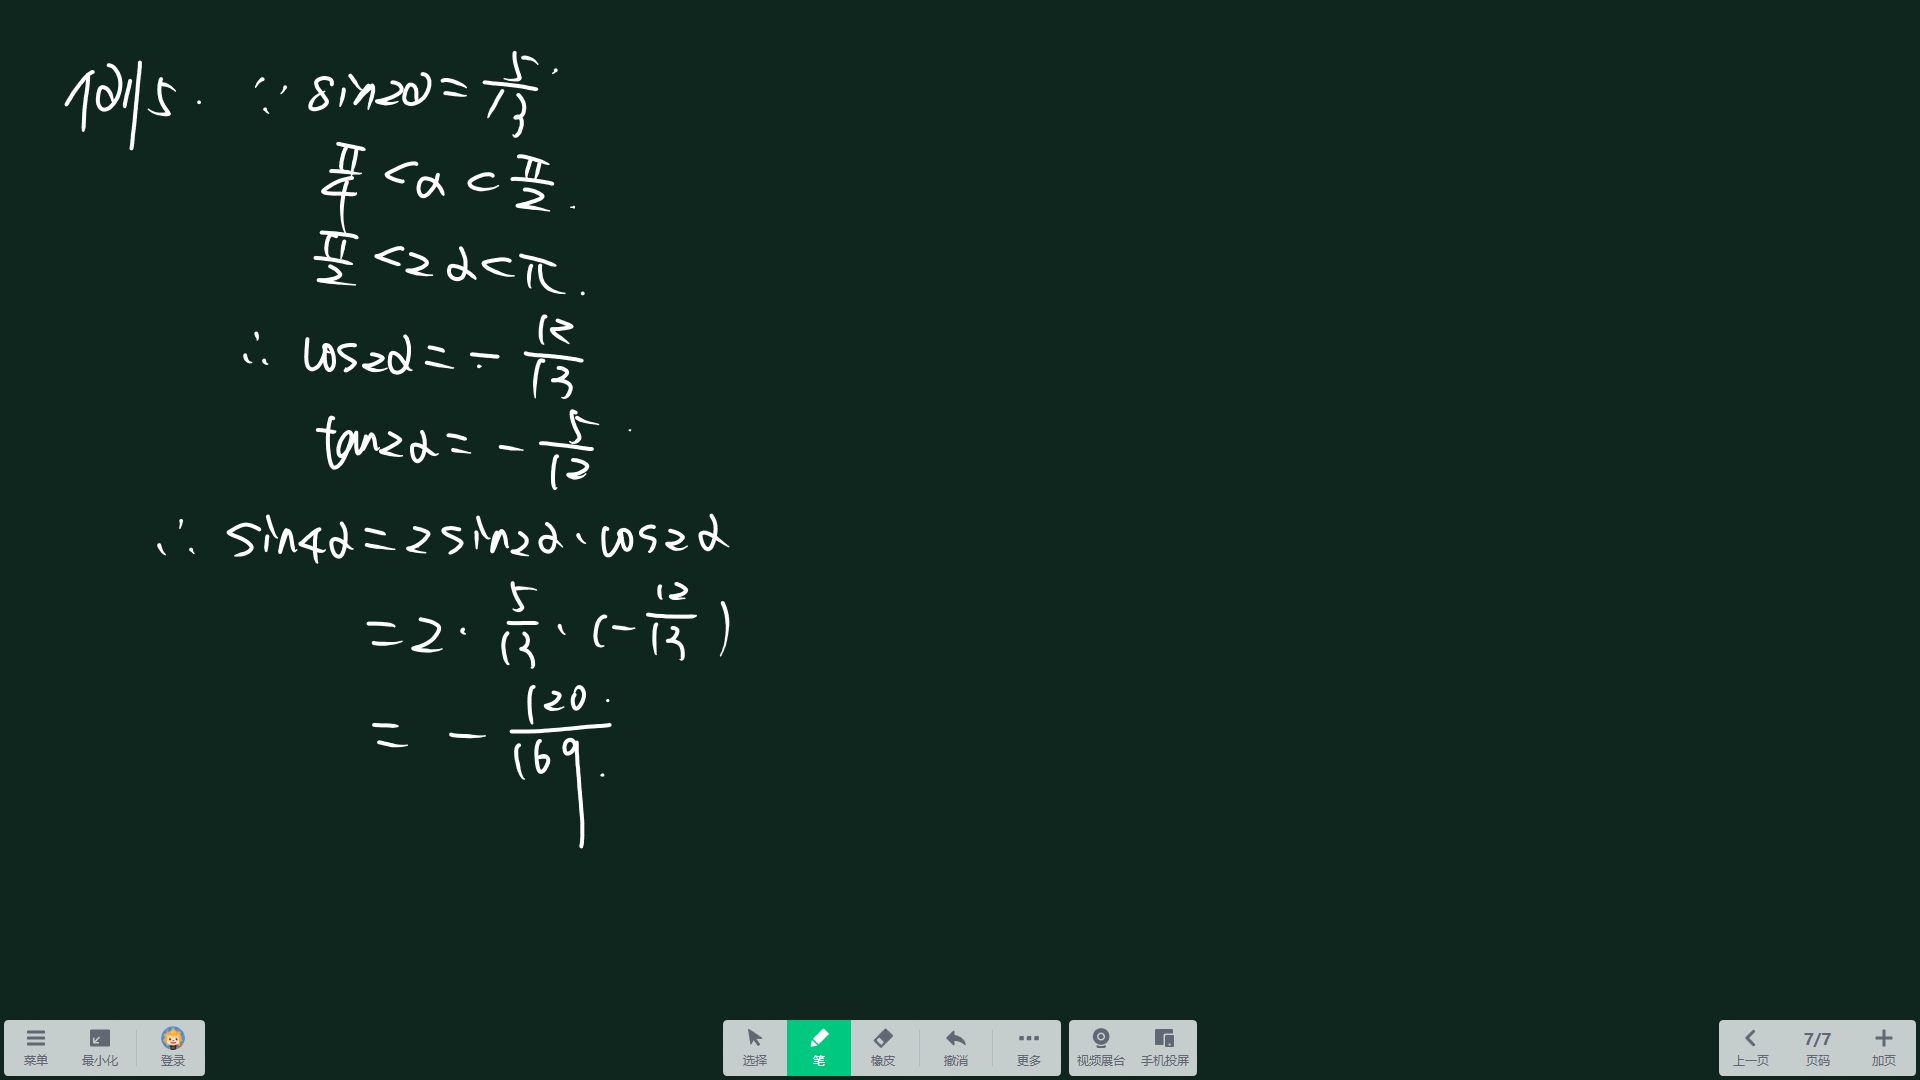 例5. ∵ sin2α = 5/13.
π/4 < α < π/2.
π/2 < 2α < π.
∴ cos2α = - 12/13
tan2α = - 5/12
∴ sin4α = 2sin2α·cos2α
= 2 · 5/13 · (- 12/13)
= - 120/169.
菜单 最小化 登录 选择 笔 橡皮 撤消 更多 视频展台 手机投屏 上一页 7/7 页码 加页